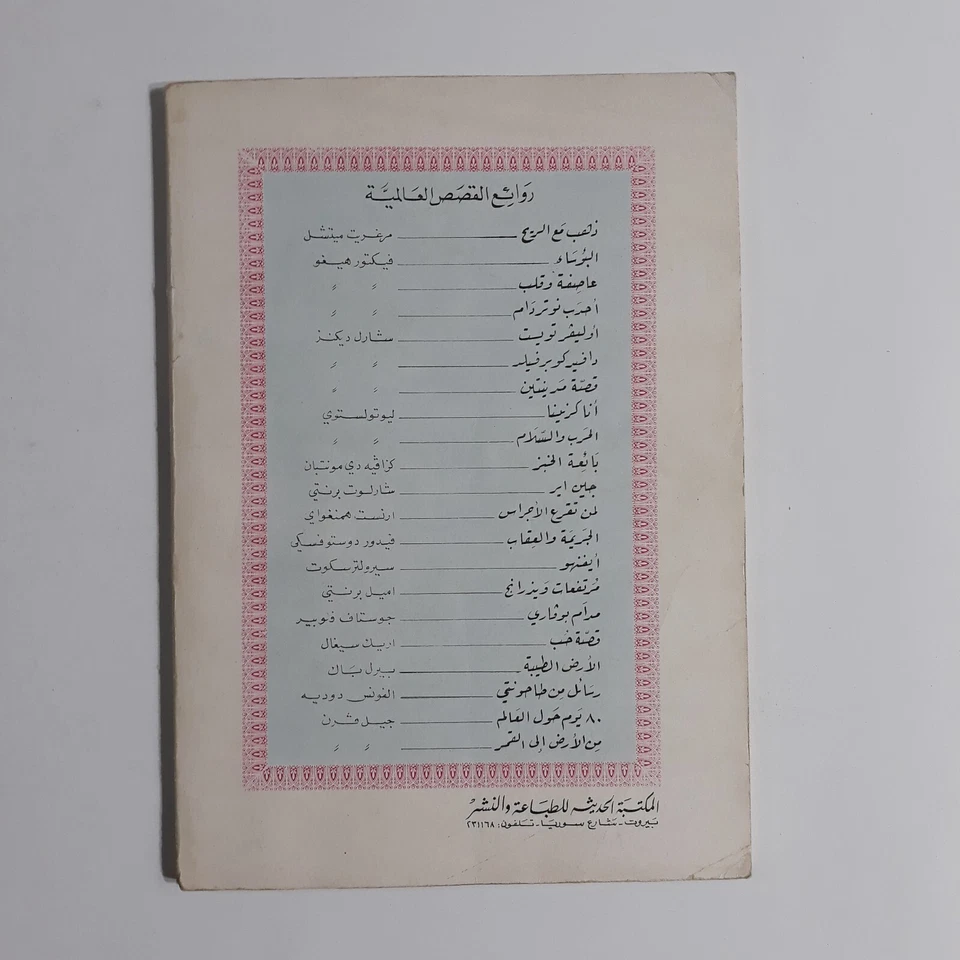 روَائِع القصَص العَالميَّة
ذهب مَع الريح ــــــــ مرغريت ميتشل
البؤسَاء ــــــــ فيكتور هيغو
عاصفة وَقلب ــــــــ " "
أحدَب نوتردَام ــــــــ " "
أوليڤر تويست ــــــــ شارل ديكنز
دافيد كوبرفيلد ــــــــ " "
قصّة مَدينتين ــــــــ " "
أنا كرنينا ــــــــ ليوتولستوي
الحرَب والسَّلام ــــــــ " "
بَائِعة الخبز ــــــــ كزاڤيه دي مونتبان
جين اير ــــــــ شارلوت برنتي
لمن تقرع الأجراس ــــــــ ارنست همنغواي
الجَريمَة والعِقاب ــــــــ فيدور دوستوفسكي
أيفنهو ــــــــ سير ولتر سكوت
مُرتفعات ويذرانج ــــــــ اميل برنتي
مدَام بوڤاري ــــــــ جوستاف فلوبير
قصّة حُب ــــــــ اريك سيغال
الأرض الطيبة ــــــــ بيرل باك
رسَائل مِن طاحونتي ــــــــ الفونس دوديه
٨٠ يَوم حَول العَالم ــــــــ جيل ڤرن
مِن الأرض إلى القمر ــــــــ " "
المكتبَة الحَديثة للطبَاعة والنشرْ
بَيروت - شارع سوريا - تلفون: ٢٣١١٦٨